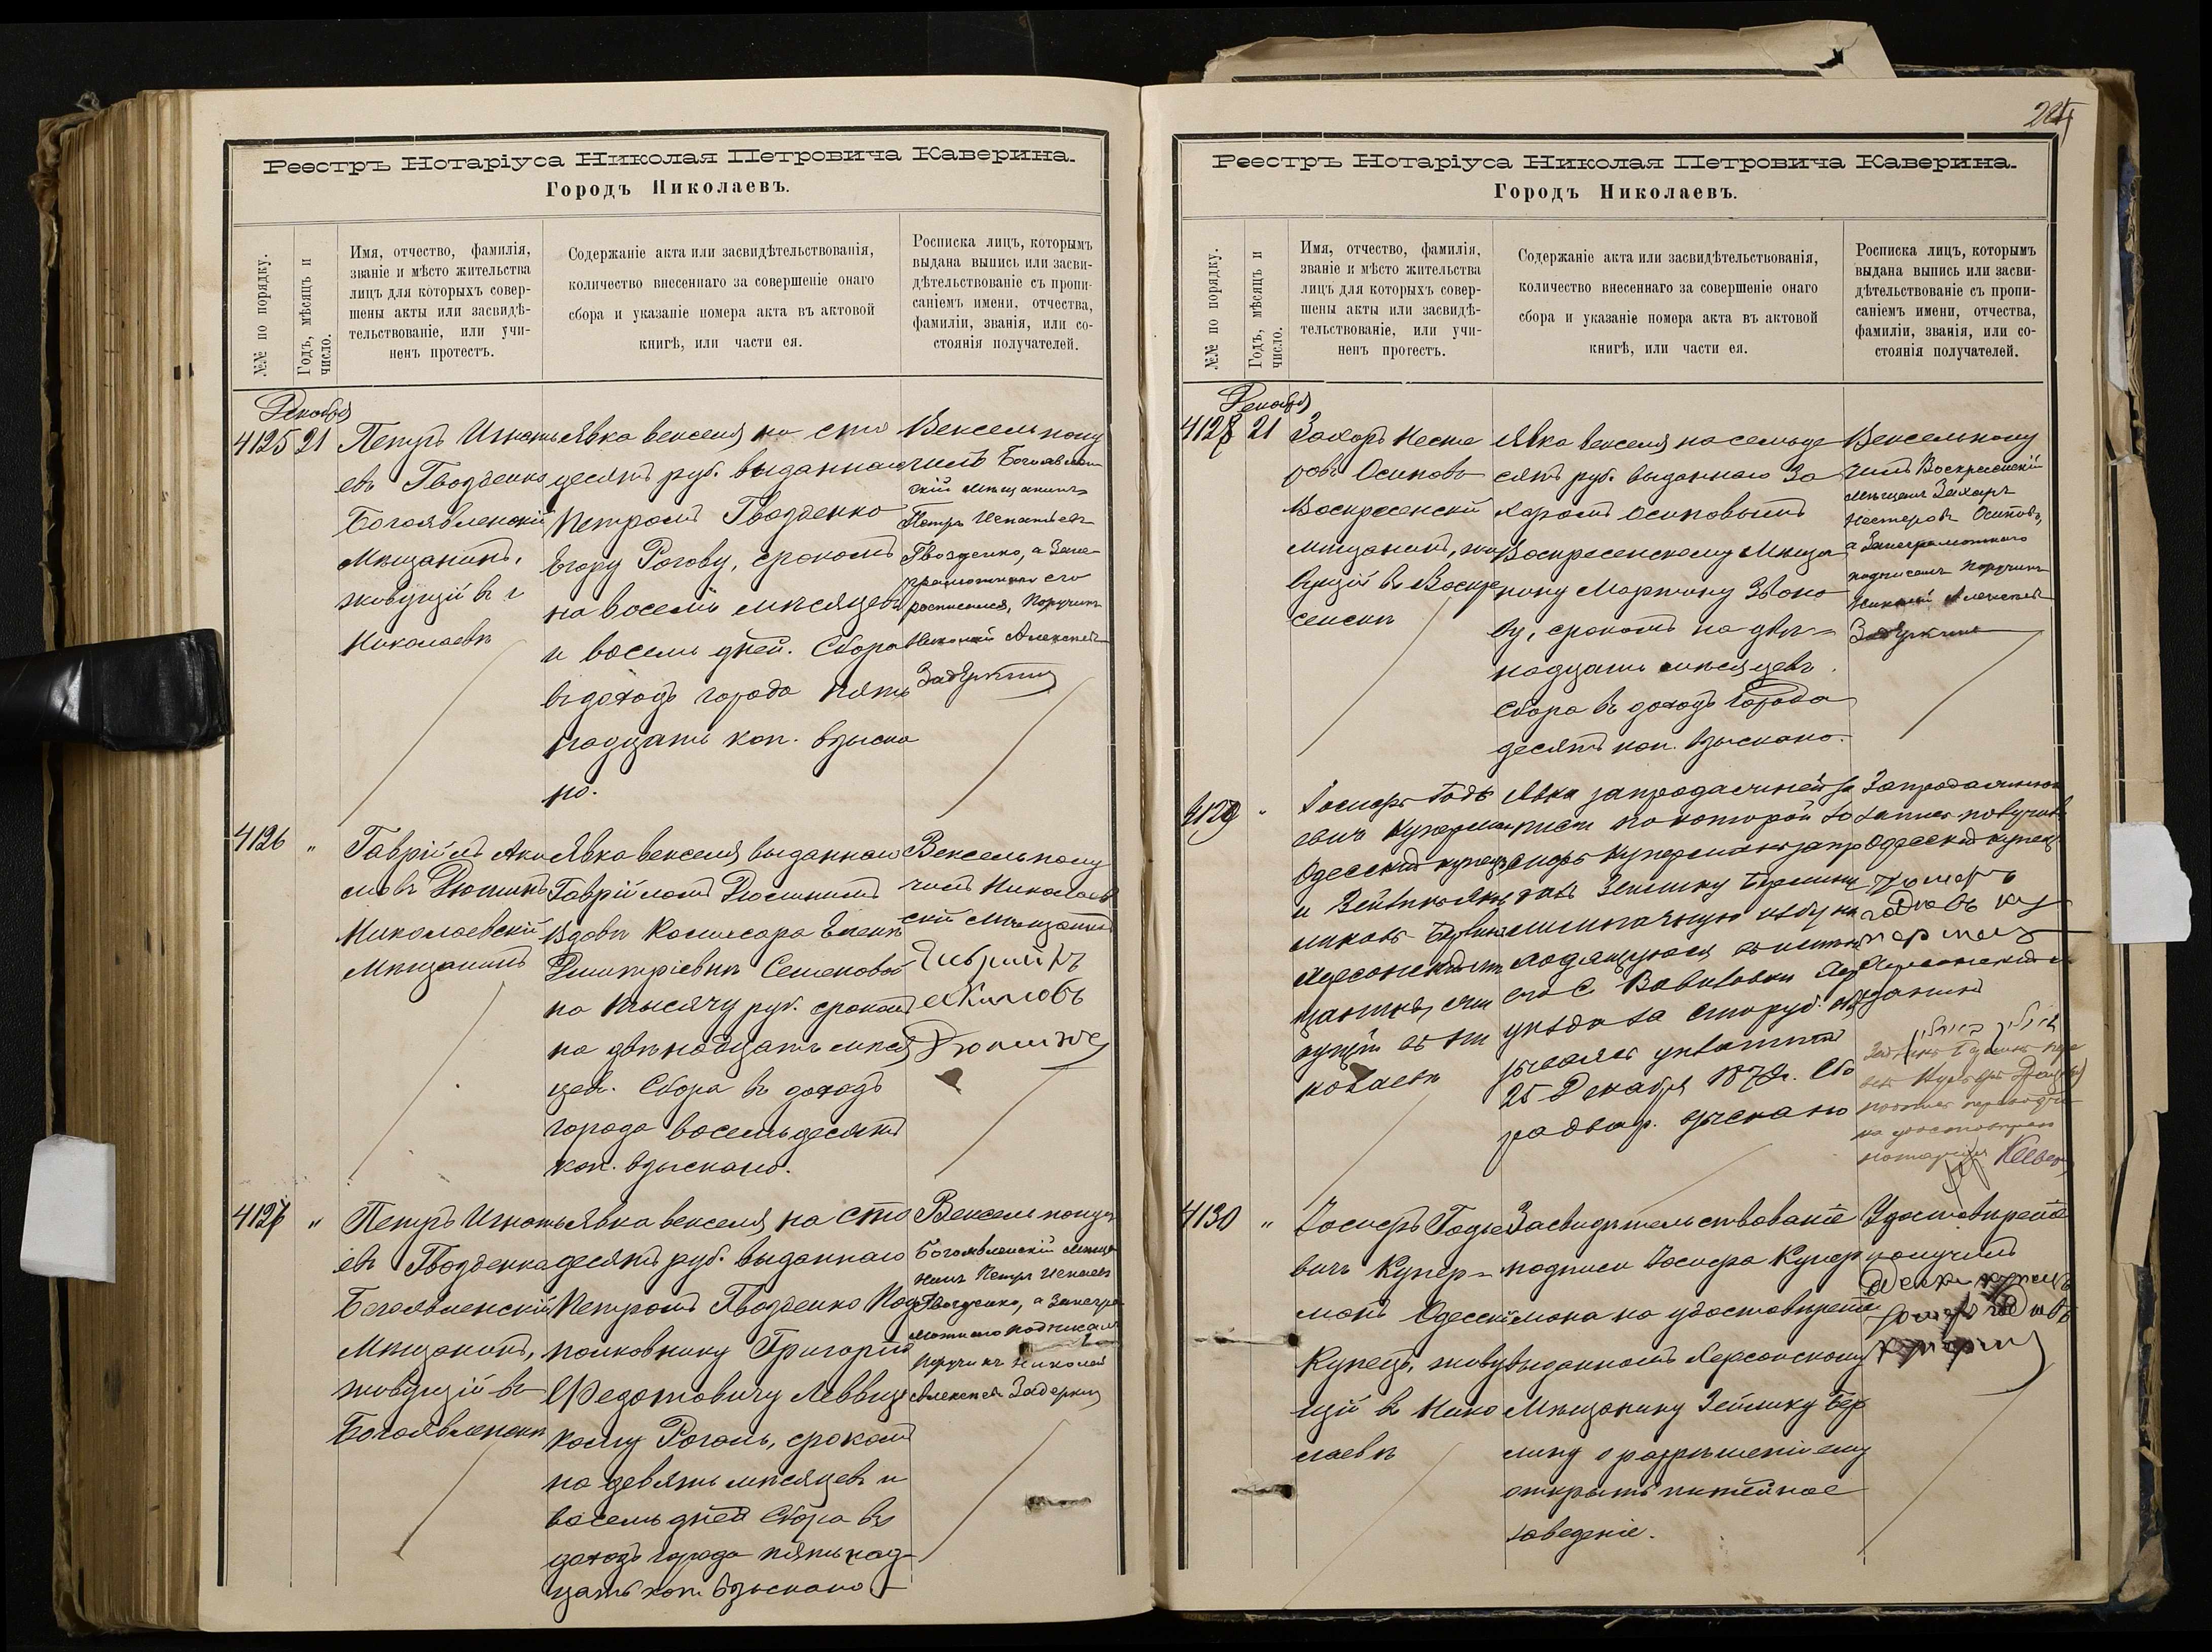 Реестръ Нотаріуса Николая Петровича Каверина.
Городъ Николаевъ.
№№ по порядку.
Годъ, мѣсяцъ и число.
Имя, отчество, фамилія,
званіе и мѣсто жительства
лицъ для которыхъ совер-
шены акты или засвидѣ-
тельствованіе, или учи-
ненъ протестъ.
Содержаніе акта или засвидѣтельствованія,
количество внесеннаго за совершеніе онаго
сбора и указаніе номера акта въ актовой
книгѣ, или части ея.
Росписка лицъ, которымъ
выдана выпись или засви-
дѣтельствованіе съ пропи-
саніемъ имени, отчества,
фамиліи, званія, или со-
стоянія получателей.
Декабря
4125 21
Петръ Игнать
евъ Гвозденко
Богоявленскій
Мѣщанинъ,
живущій въ г
Николаевѣ
Явка векселя на сто
десять руб. выданнаго
Петромъ Гвозденко
Егору Рогову, срокомъ
на восемь мѣсяцевъ
и восемь дней. Сбора
въ доходъ города пят
надцать коп. взыска
но.
Вексель полу
чилъ Богоявлен
скій мѣщанинъ
Петръ Игнатьевъ
Гвозденко, а за не
грамотнаго его
росписался, Поручикъ
Николай Алексѣевъ
Задеркинъ
4126 "
Гавріилъ Аки
мовъ Дюминъ
Николаевскій
Мѣщанинъ
Явка векселя выданнаго
Гавріиломъ Дюминымъ
Вдовѣ Комиссара Еленѣ
Дмитріевнѣ Семеновой
на тысячу руб. срокомъ
на двѣнадцать мѣся
цев. Сбора въ доходъ
города восемьдесятъ
коп. взыскано.
Вексель полу
чилъ Николаев
скій мѣщанинъ
Гаврійлъ
Акимовъ
Дюминъ
4127 "
Петръ Игнать
евъ Гвозденко
Богоявленскій
Мѣщанинъ,
живущій въ
Богоявленскѣ
Явка векселя на сто
десять руб. выданнаго
Петромъ Гвозденко Под
полковнику Григорію
Федотовичу Леввиц
кому Роголь, срокомъ
на девять мѣсяцевъ и
восемь дней Сбора въ
доходъ города пятьнад-
цать коп взыскано.
Вексель получ
Богоявленскій мѣща
нинъ Петръ Игнатьевъ
Гвозденко, а за негра
мотнаго подписалъ
Поручикъ Николай
Алексѣевъ Задеркинъ
Реестръ Нотаріуса Николая Петровича Каверина.
Городъ Николаевъ.
№№ по порядку.
Годъ, мѣсяцъ и число.
Имя, отчество, фамилія,
званіе и мѣсто жительства
лицъ для которыхъ совер-
шены акты или засвидѣ-
тельствованіе, или учи-
ненъ протестъ.
Содержаніе акта или засвидѣтельствованія,
количество внесеннаго за совершеніе онаго
сбора и указаніе номера акта въ актовой
книгѣ, или части ея.
Росписка лицъ, которымъ
выдана выпись или засви-
дѣтельствованіе съ пропи-
саніемъ имени, отчества,
фамиліи, званія, или со-
стоянія получателей.
Декабря
4128 21
Захаръ Несте
ровъ Осиповъ
Воскресенскій
мѣщанинъ, жи
вущій въ Воскре
сенскѣ
Явка векселя на семьде
сятъ руб. выданнаго За
харомъ Осиповымъ
Воскресенскому Мѣща
нину Мартину Звоно
ву, срокомъ на двѣ=
надцать мѣсяцевъ.
Сбора въ доходъ города
десять коп. взыскано.
Вексель полу
чилъ Воскресенскій
мѣщан Захаръ
Нестеровъ Осиповъ,
а за неграмотнаго
подписалъ Поручикъ
Николай Алексѣев
Задеркинъ
4129 "
Іосифъ Годе
евичъ Куперманъ
Одесскій купецъ
и Зейликъ
Херсонскій мѣ
щанинъ,
вущій въ Ни
колаевѣ
Явка запродажной за
писи по которой Іо
сифъ Куперманъ запро
далъ Зейлику Берлину
избу на
ходящуюся въ
с. Вавиловки Хер
уѣзда за сто руб.
25 Декабря 187 г. Сбо
ра два р. взыскано
Запродажную
запись получилъ
Одесскій купец
Херсонскій мѣ
щанинъ
4130 "
Іосифъ Годее
вичъ Купер=
манъ Одесскій
Купецъ, живу
щій въ Нико
лаевѣ
Засвидѣтельствованіе
подписи Іосифа Купер
мана на удостовѣреніи
выданномъ Херсонскому
Мѣщанину Зейлику Бер
лину о разрѣшеніи ему
открыть питейное
заведеніе.
Удостовѣреніе
получилъ